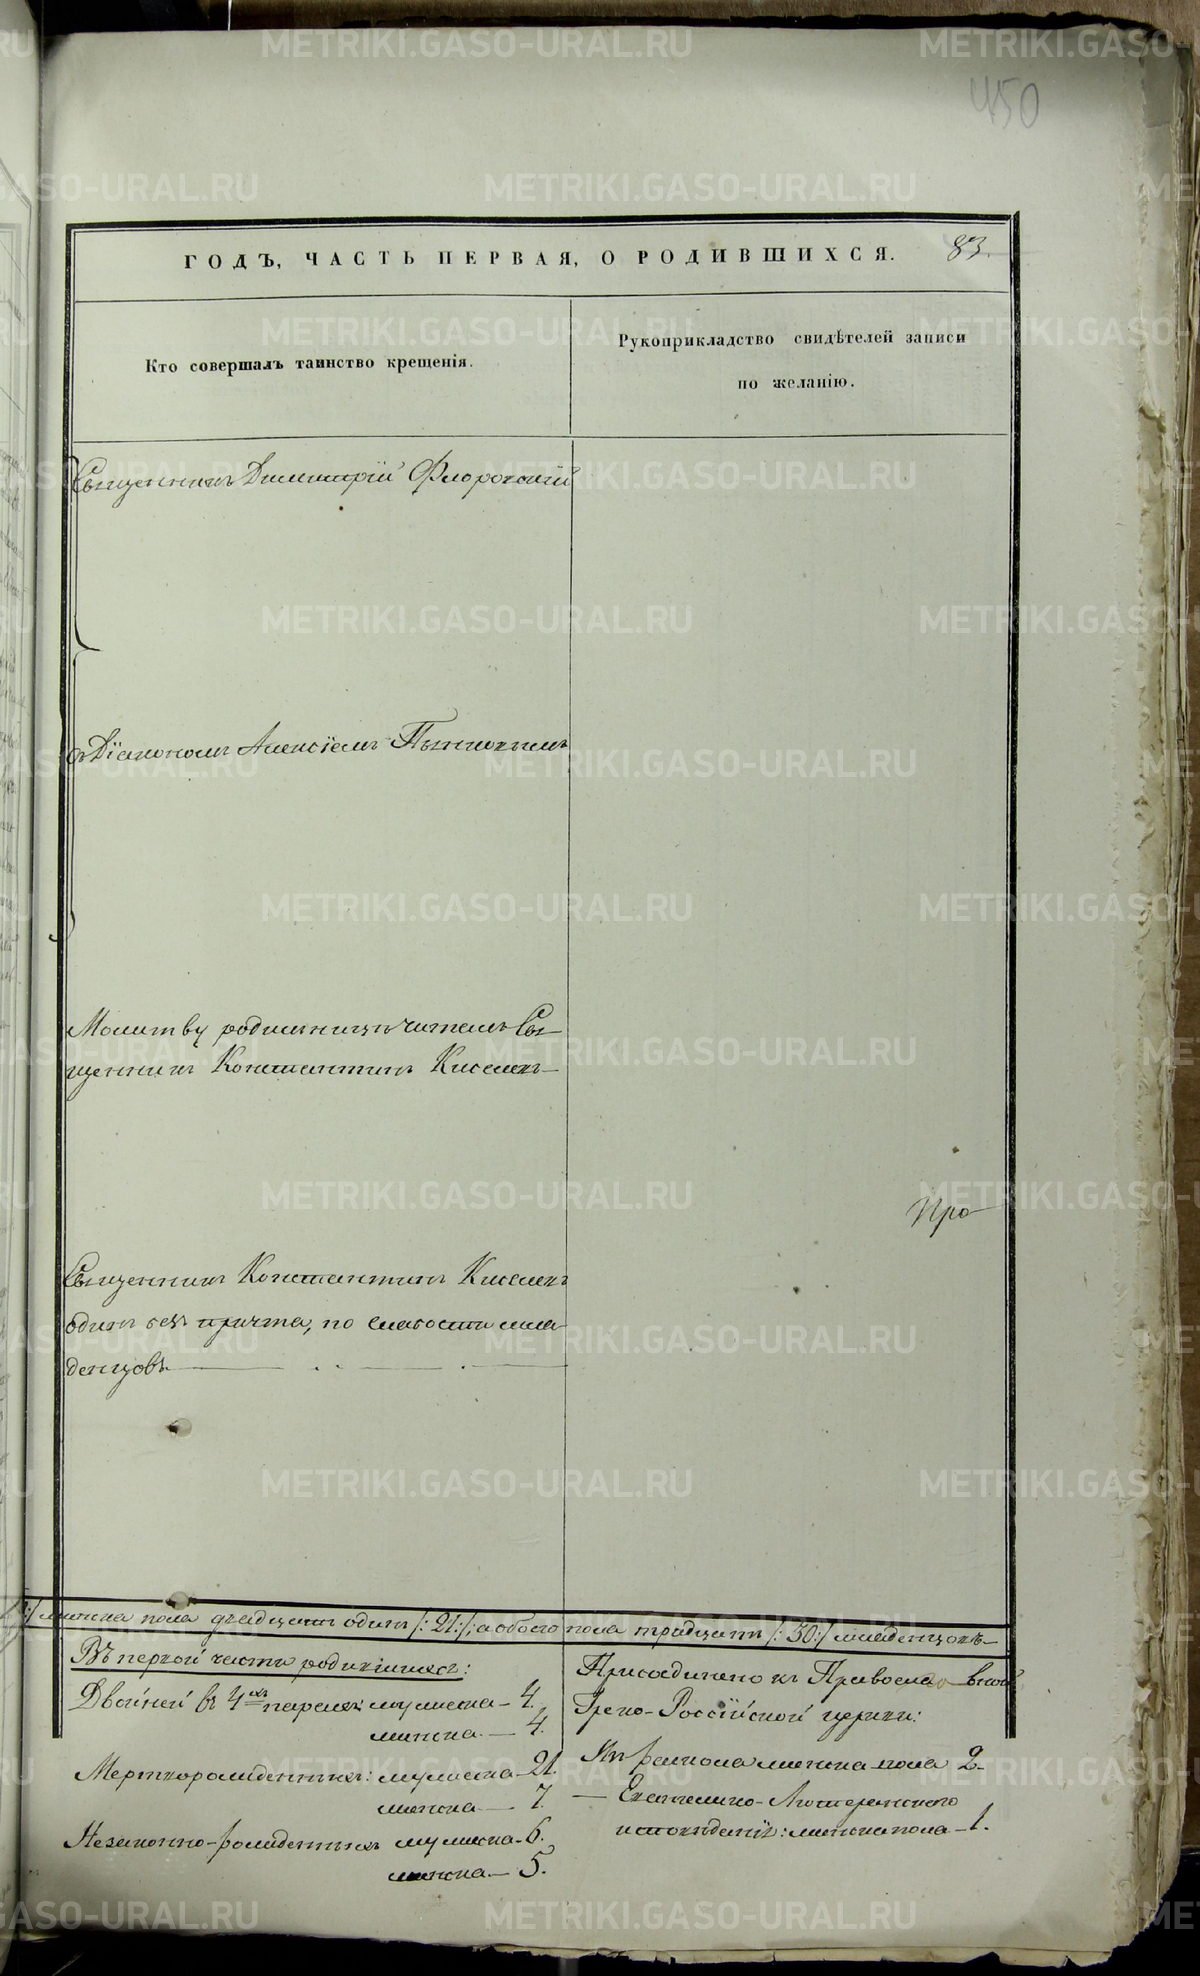 450
83.
ГОДЪ, ЧАСТЬ ПЕРВАЯ, О РОДИВШИХСЯ.
Кто совершалъ таинство крещенія.
Рукоприкладство свидѣтелей записи
по желанію.
Священникъ Димитрій Флоровскій
съ Діакономъ Алексіемъ
Молитву родильницѣ читалъ Свя-
щенникъ Константинъ Киселевъ
Про
Священникъ Константинъ Киселевъ
одинъ безъ причта, по слабости мла-
денцовъ
женска пола двадцать одинъ /: 21:/; а обоего пола тридцать /: 30:/ младенцовъ
Въ первой части родившихся:
Двойней въ 4хъ парахъ мужеска - 4.
женска. - 4.
Мертворожденныхъ: мужеска - 21.
женска - 7.
Незаконно-рожденныхъ мужеска - 6.
женска. - 5.
Присоединено къ Православной
Греко-Россійской церкви:
Изъ раскола женска пола 2.
— Евангелико-Лютеранскаго
исповѣданія: женска пола - 1.
METRIKI.GASO-URAL.RU